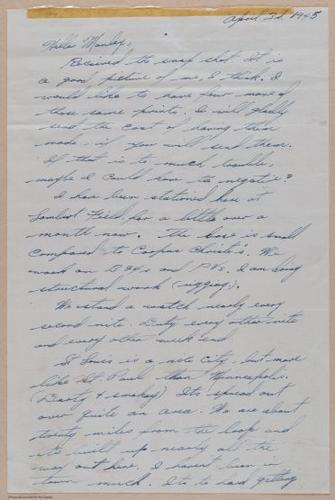 April 22, 1945
Hello Manley,
Received the snap shot. It is
a good picture of me, I think. I
would like to have few more of
those same prints. I will gladly
send the cost of having them
made, if you will send them.
If that is to much trouble,
maybe I could have the negative?
I have been stationed here at
Lambert Field, for a little over a
month now. The base is small
compared to Corpus Christi's. We
work on and I am doing
structural work (rigging).
We stand a watch nearly every
second nite. Duty every other nite
and every other week end
St Louis is a nice city, but more
like St. Paul than Minneapolis.
(Dirty & smokey) Its spread out
over quite an area. We are about
twenty miles from the loop and
its built up nearly all the
way out here. I haven't been in
town much. Its to hard getting